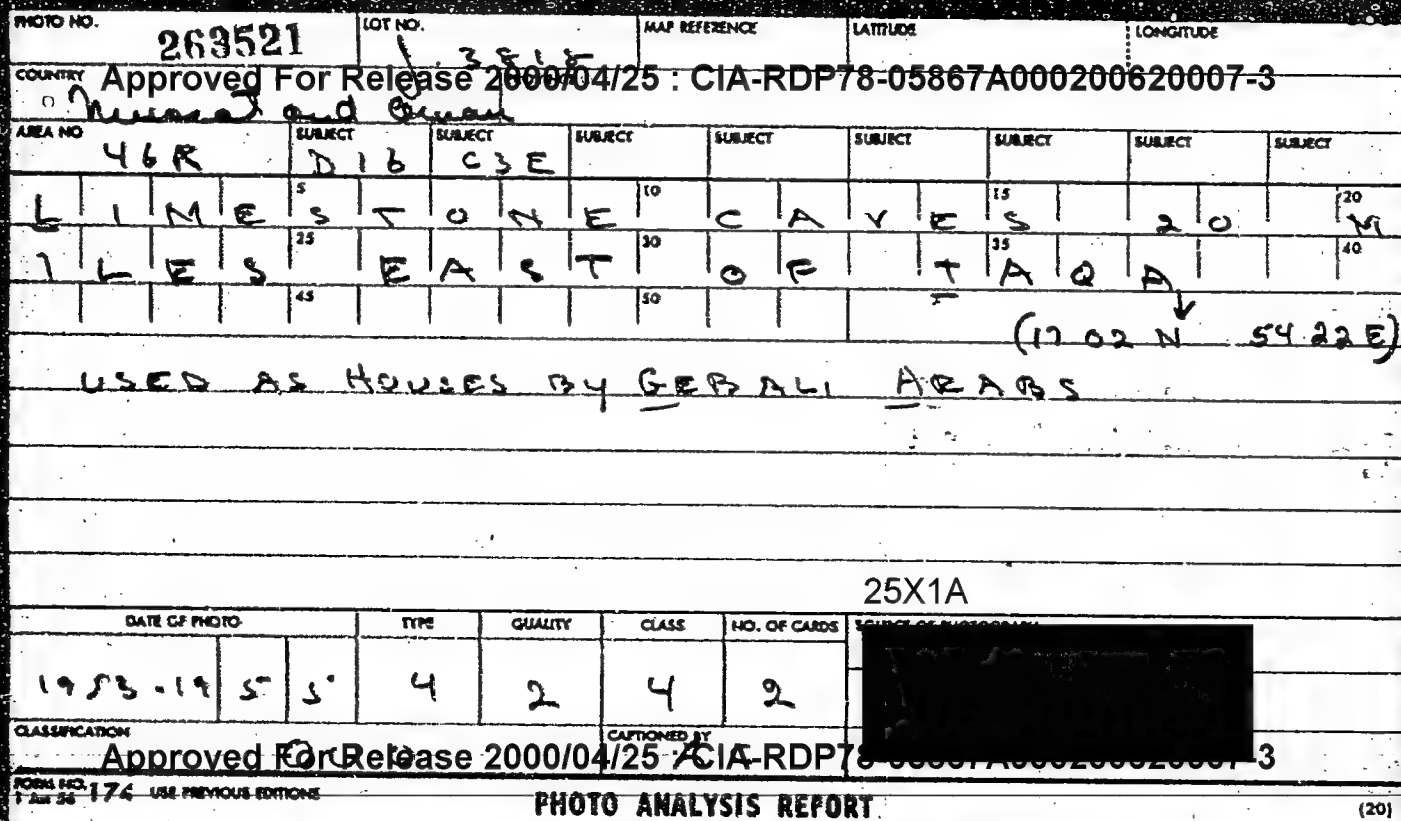 PHOTO NO. 263521 LOT NO. 3818 MAP REFERENCE LATITUDE LONGITUDE
COUNTRY Approved For Release 2000/04/25 : CIA-RDP78-05867A000200620007-3
Muscat and Oman
AREA NO 46R SUBJECT D16 SUBJECT C3E SUBJECT SUBJECT SUBJECT SUBJECT SUBJECT SUBJECT
5 10 15 20
LIMESTONE CAVES 20 M
25 30 35 40
ILES EAST OF TAQA
45 50
(17 02 N 54 22 E)
USED AS HOUSES BY GEBALI ARABS
25X1A
DATE OF PHOTO TYPE QUALITY CLASS NO. OF CARDS SOURCE OF PHOTOGRAPH
1953-1955 4 2 4 2
CLASSIFICATION CAPTIONED BY
Approved For Release 2000/04/25 : CIA-RDP78-05867A000200620007-3
FORM NO. 174 USE PREVIOUS EDITIONS PHOTO ANALYSIS REPORT (20)
1 Jun 56